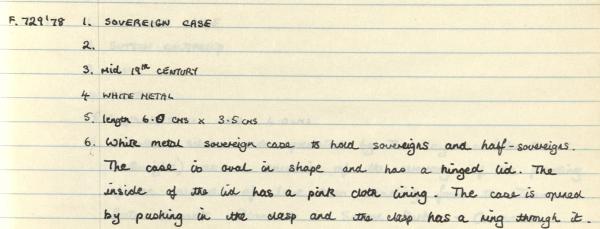 F.729'78 1. SOVEREIGN CASE
2.
3. Mid 19th CENTURY
4 WHITE METAL
5. length 6.0 CMS x 3.5 CMS
6. White metal sovereign case to hold sovereigns and half-sovereigns.
The case is oval in shape and has a hinged lid. The
inside of the lid has a pink cloth lining. The case is opened
by pushing in the clasp and the clasp has a ring through it.